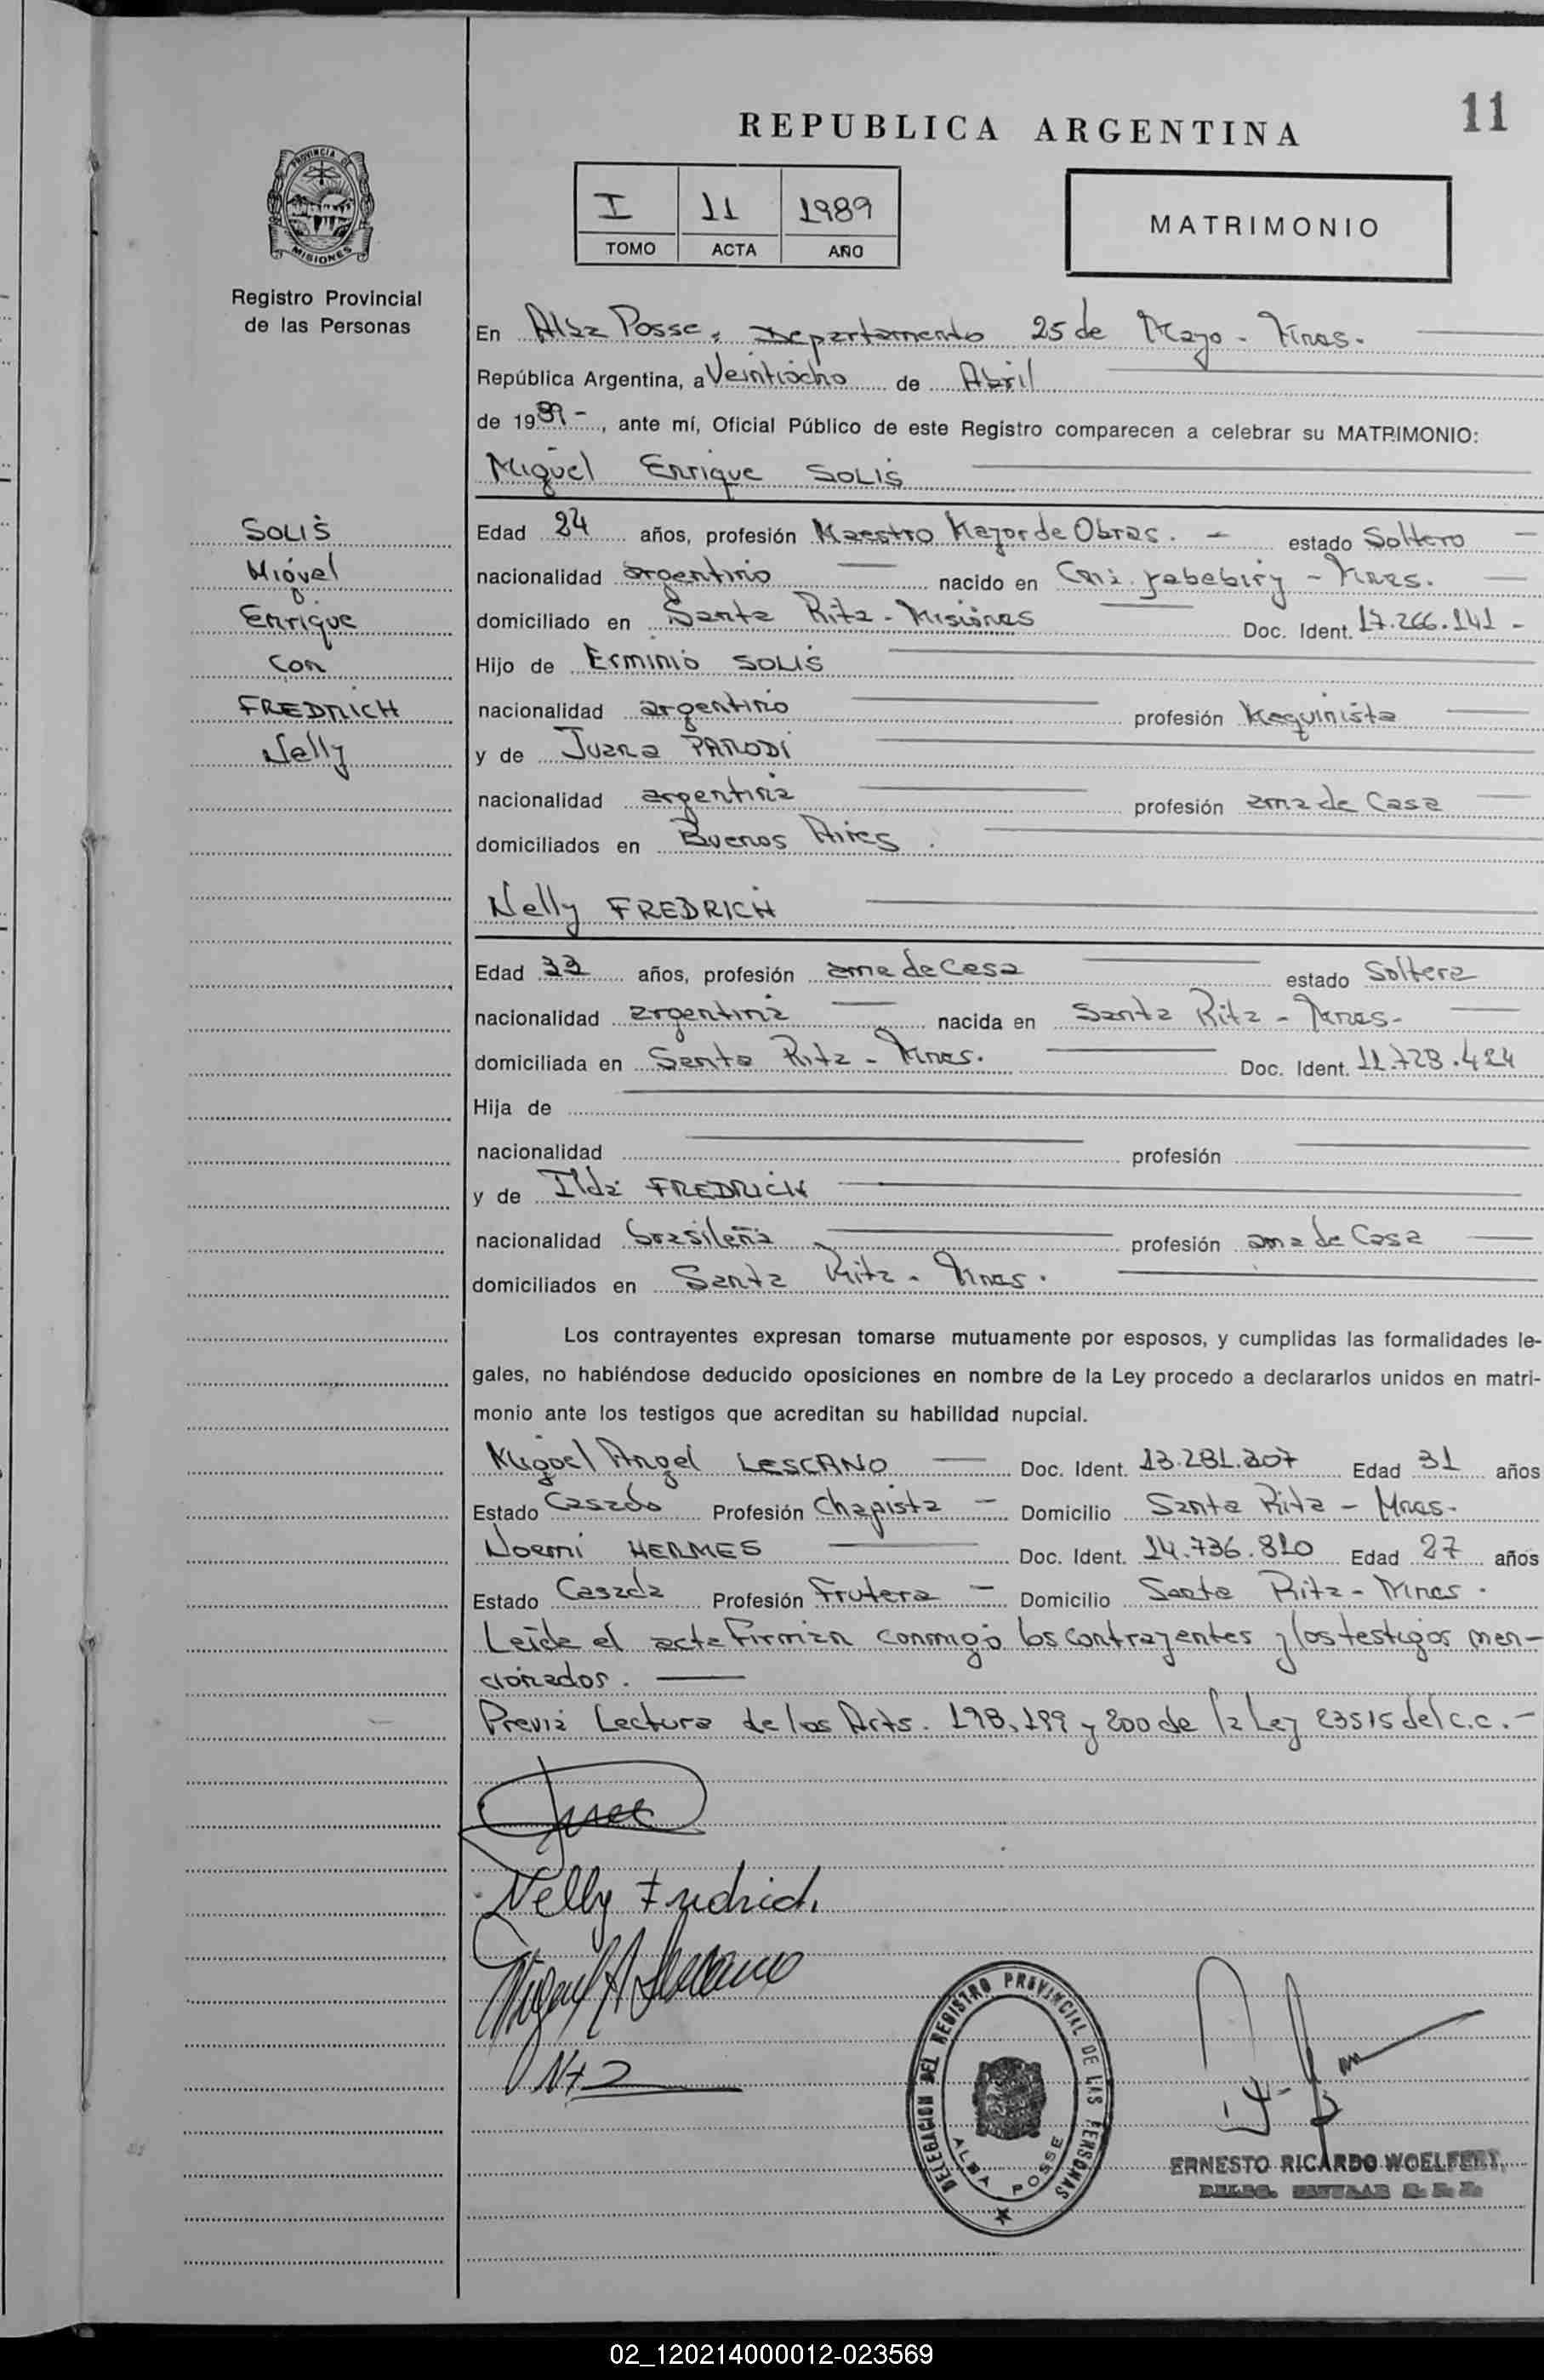 11
REPUBLICA ARGENTINA
I 11 1989
TOMO ACTA AÑO
MATRIMONIO
PROVINCIA DE
MISIONES
Registro Provincial
de las Personas
En Alba Posse, Departamento 25 de Mayo - Mnes.
República Argentina, a Veintiocho de Abril
de 1989-, ante mí, Oficial Público de este Registro comparecen a celebrar su MATRIMONIO:
Miguel Enrique SOLIS
SOLIS
Miguel
Enrique
Con
FREDRICH
Nelly
Edad 24 años, profesión Maestro Mayor de Obras. - estado Soltero -
nacionalidad argentino nacido en Cnia. Yabebiry - Mnes.
domiciliado en Santa Rita - Misiones Doc. Ident. 17.266.141 -
Hijo de Erminio SOLIS
nacionalidad argentino profesión Maquinista
y de Juana PARODI
nacionalidad argentina profesión ama de Casa
domiciliados en Buenos Aires.
Nelly FREDRICH
Edad 33 años, profesión ama de Casa estado Soltera
nacionalidad argentina nacida en Santa Rita - Mnes-
domiciliada en Santa Rita - Mnes. Doc. Ident. 11.728.424
Hija de
nacionalidad profesión
y de Ilda FREDRICH
nacionalidad brasileña profesión ama de Casa
domiciliados en Santa Rita - Mnes.
Los contrayentes expresan tomarse mutuamente por esposos, y cumplidas las formalidades le-
gales, no habiéndose deducido oposiciones en nombre de la Ley procedo a declararlos unidos en matri-
monio ante los testigos que acreditan su habilidad nupcial.
Miguel Angel LESCANO Doc. Ident. 13.281.207 Edad 31 años
Estado Casado Profesión Chapista - Domicilio Santa Rita - Mnes-
Noemi HERMES Doc. Ident. 14.736.810 Edad 27 años
Estado Casada Profesión Frutera - Domicilio Santa Rita - Mnes.
Leída el acta Firman conmigo los contrayentes y los testigos men-
cionados.
Previa Lectura de los Arts. 198, 199 y 200 de la Ley 23515 del c.c. -
Nelly Fredrich
Miguel A Lescano
DELEGACION DEL REGISTRO PROVINCIAL DE LAS PERSONAS
ALBA POSSE
ERNESTO RICARDO WOELFERT
02_120214000012-023569